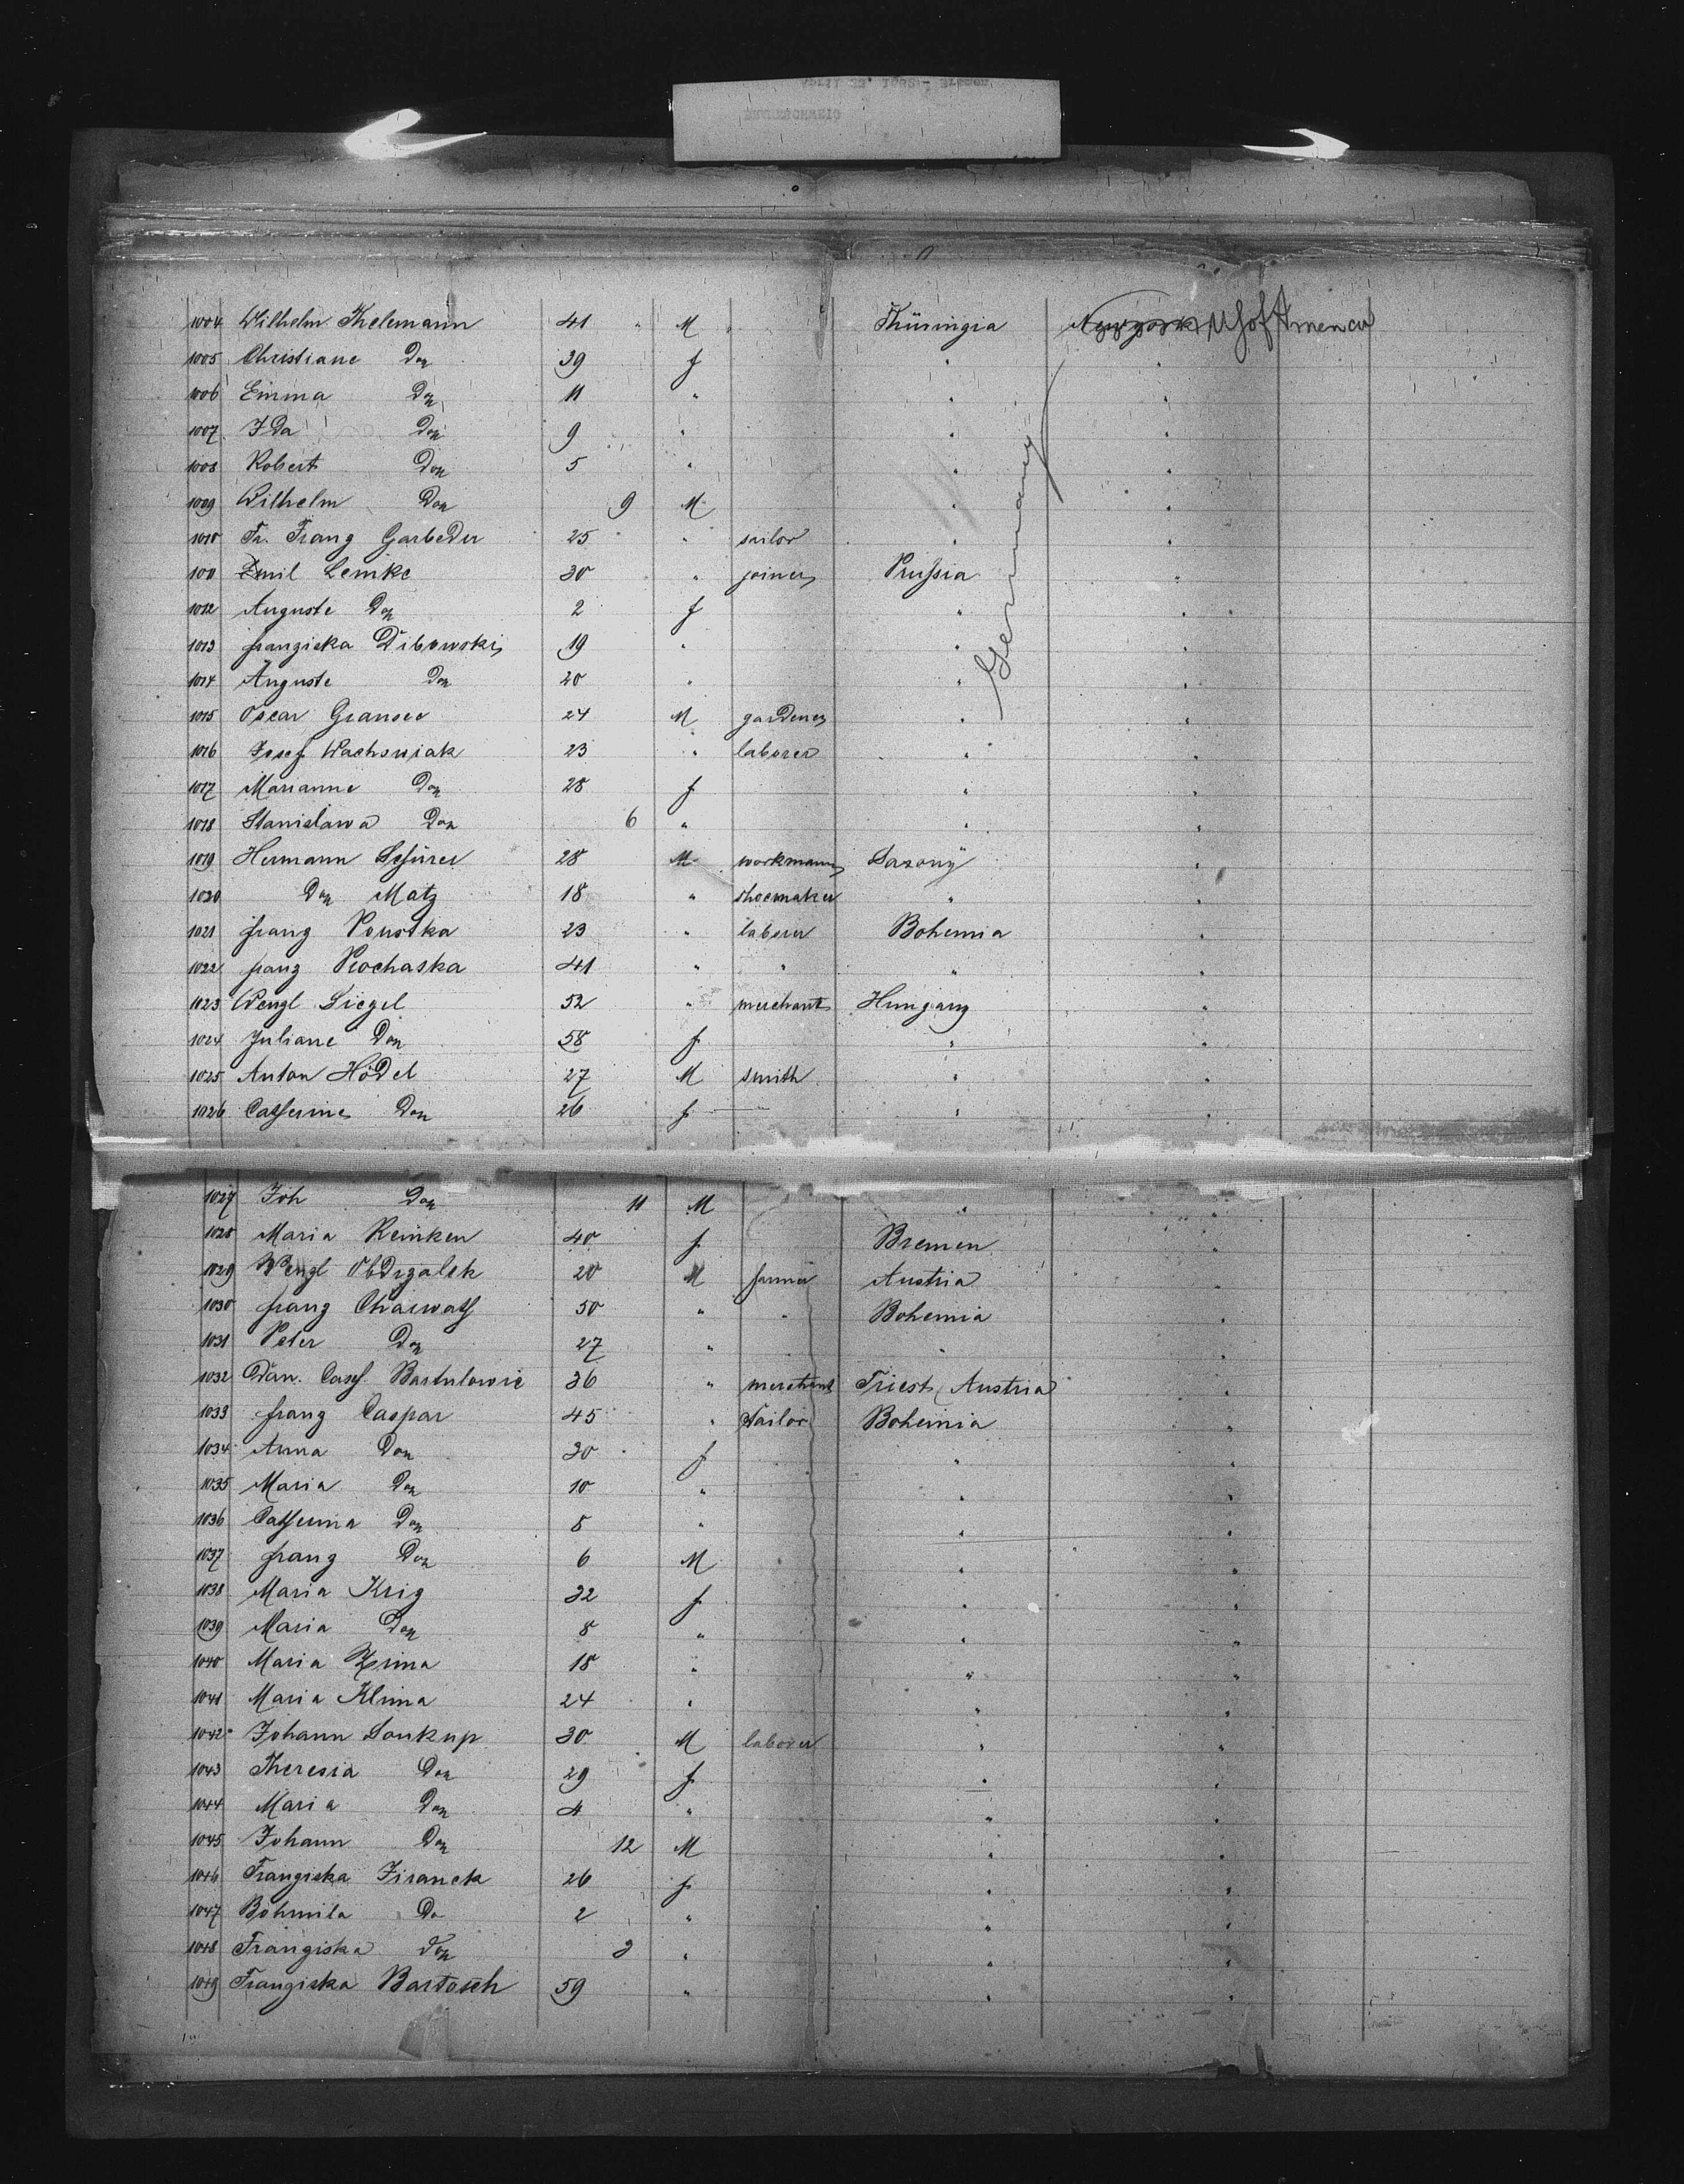 1004 Wilhelm Thelemann 41 " M Thüringia Newyork US of America
1005 Christiane Do 39 f " "
1006 Emma Do 11 " " "
1007 Ida Do 9 " " "
1008 Robert Do 5 " " "
1009 Wilhelm Do 9 M " "
1010 Fr. Franz 25 " " "
1011 Emil Lemke 30 " joiner Prussia "
1012 Auguste Do 2 f " "
1013 Franziska Dibowski 19 " " "
1014 Auguste Do 20 " " "
Germany
1015 Oscar Gransee 24 M gardener " "
1016 Josef Wachowiak 23 " laborer " "
1017 Marianne Do 28 f " "
1018 Stanislawa Do 6 " " "
1019 Hermann Schürer 28 M workmann Saxony "
1020 Do Matz 18 " shoemaker " "
1021 Franz Poustka 23 " laborer Bohemia "
1022 Franz Prochaska 41 " " " "
1023 Wenzl Siegel 52 " merchant Hungary "
1024 Juliane Do 58 f " "
1025 Anton Hödel 27 M smith " "
1026 Catherine Do 26 f — " "
1027 Joh Do 11 M " "
1028 Maria Reinken 40 f Bremen "
1029 Wenzl Obdrzalek 20 M farmer Austria "
1030 Franz Charwath 50 " " Bohemia "
1031 Peter Do 27 " " "
1032 Bartulowic 36 " merchant Triest, Austria "
1033 Franz Caspar 45 " Tailor Bohemia "
1034 Anna Do 30 f " "
1035 Maria Do 10 " " "
1036 Catherina Do 8 " " "
1037 Franz Do 6 M " "
1038 Maria Kriz 32 f " "
1039 Maria Do 8 " " "
1040 Maria Zrima 18 " " "
1041 Maria Klima 24 " " "
1042 Johann Soukup 30 M laborer " "
1043 Theresia Do 29 f " "
1044 Maria Do 4 " " "
1045 Johann Do 12 M " "
1046 Franziska Jiranek 26 f " "
1047 Bohmila Do 2 " " "
1048 Franziska Do 3 " " "
1049 Franziska Bartosch 59 " " "